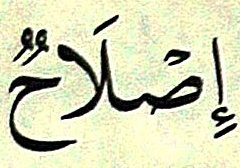 إِصْلَاحٌ